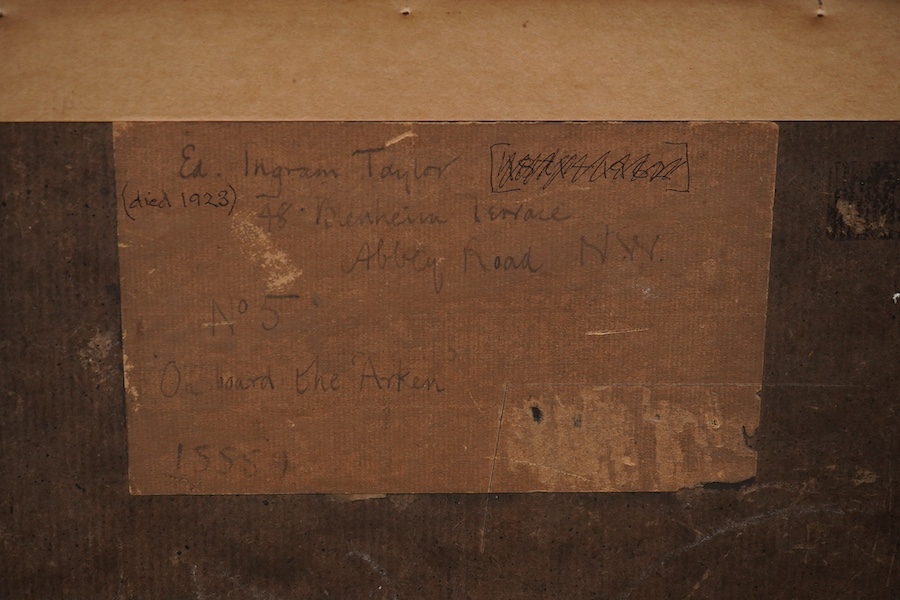 Ed. Ingram Taylor
(died 1923) 48 Blenheim Terrace
Abbey Road N.W.
No 5
"On board the "Arken"
1888